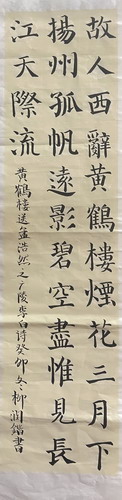 故人西辭黃鶴樓煙花三月下
揚州孤帆遠影碧空盡惟見長
江天際流
黃鶴樓送孟浩然之广陵李白诗癸卯冬柳润鍇書